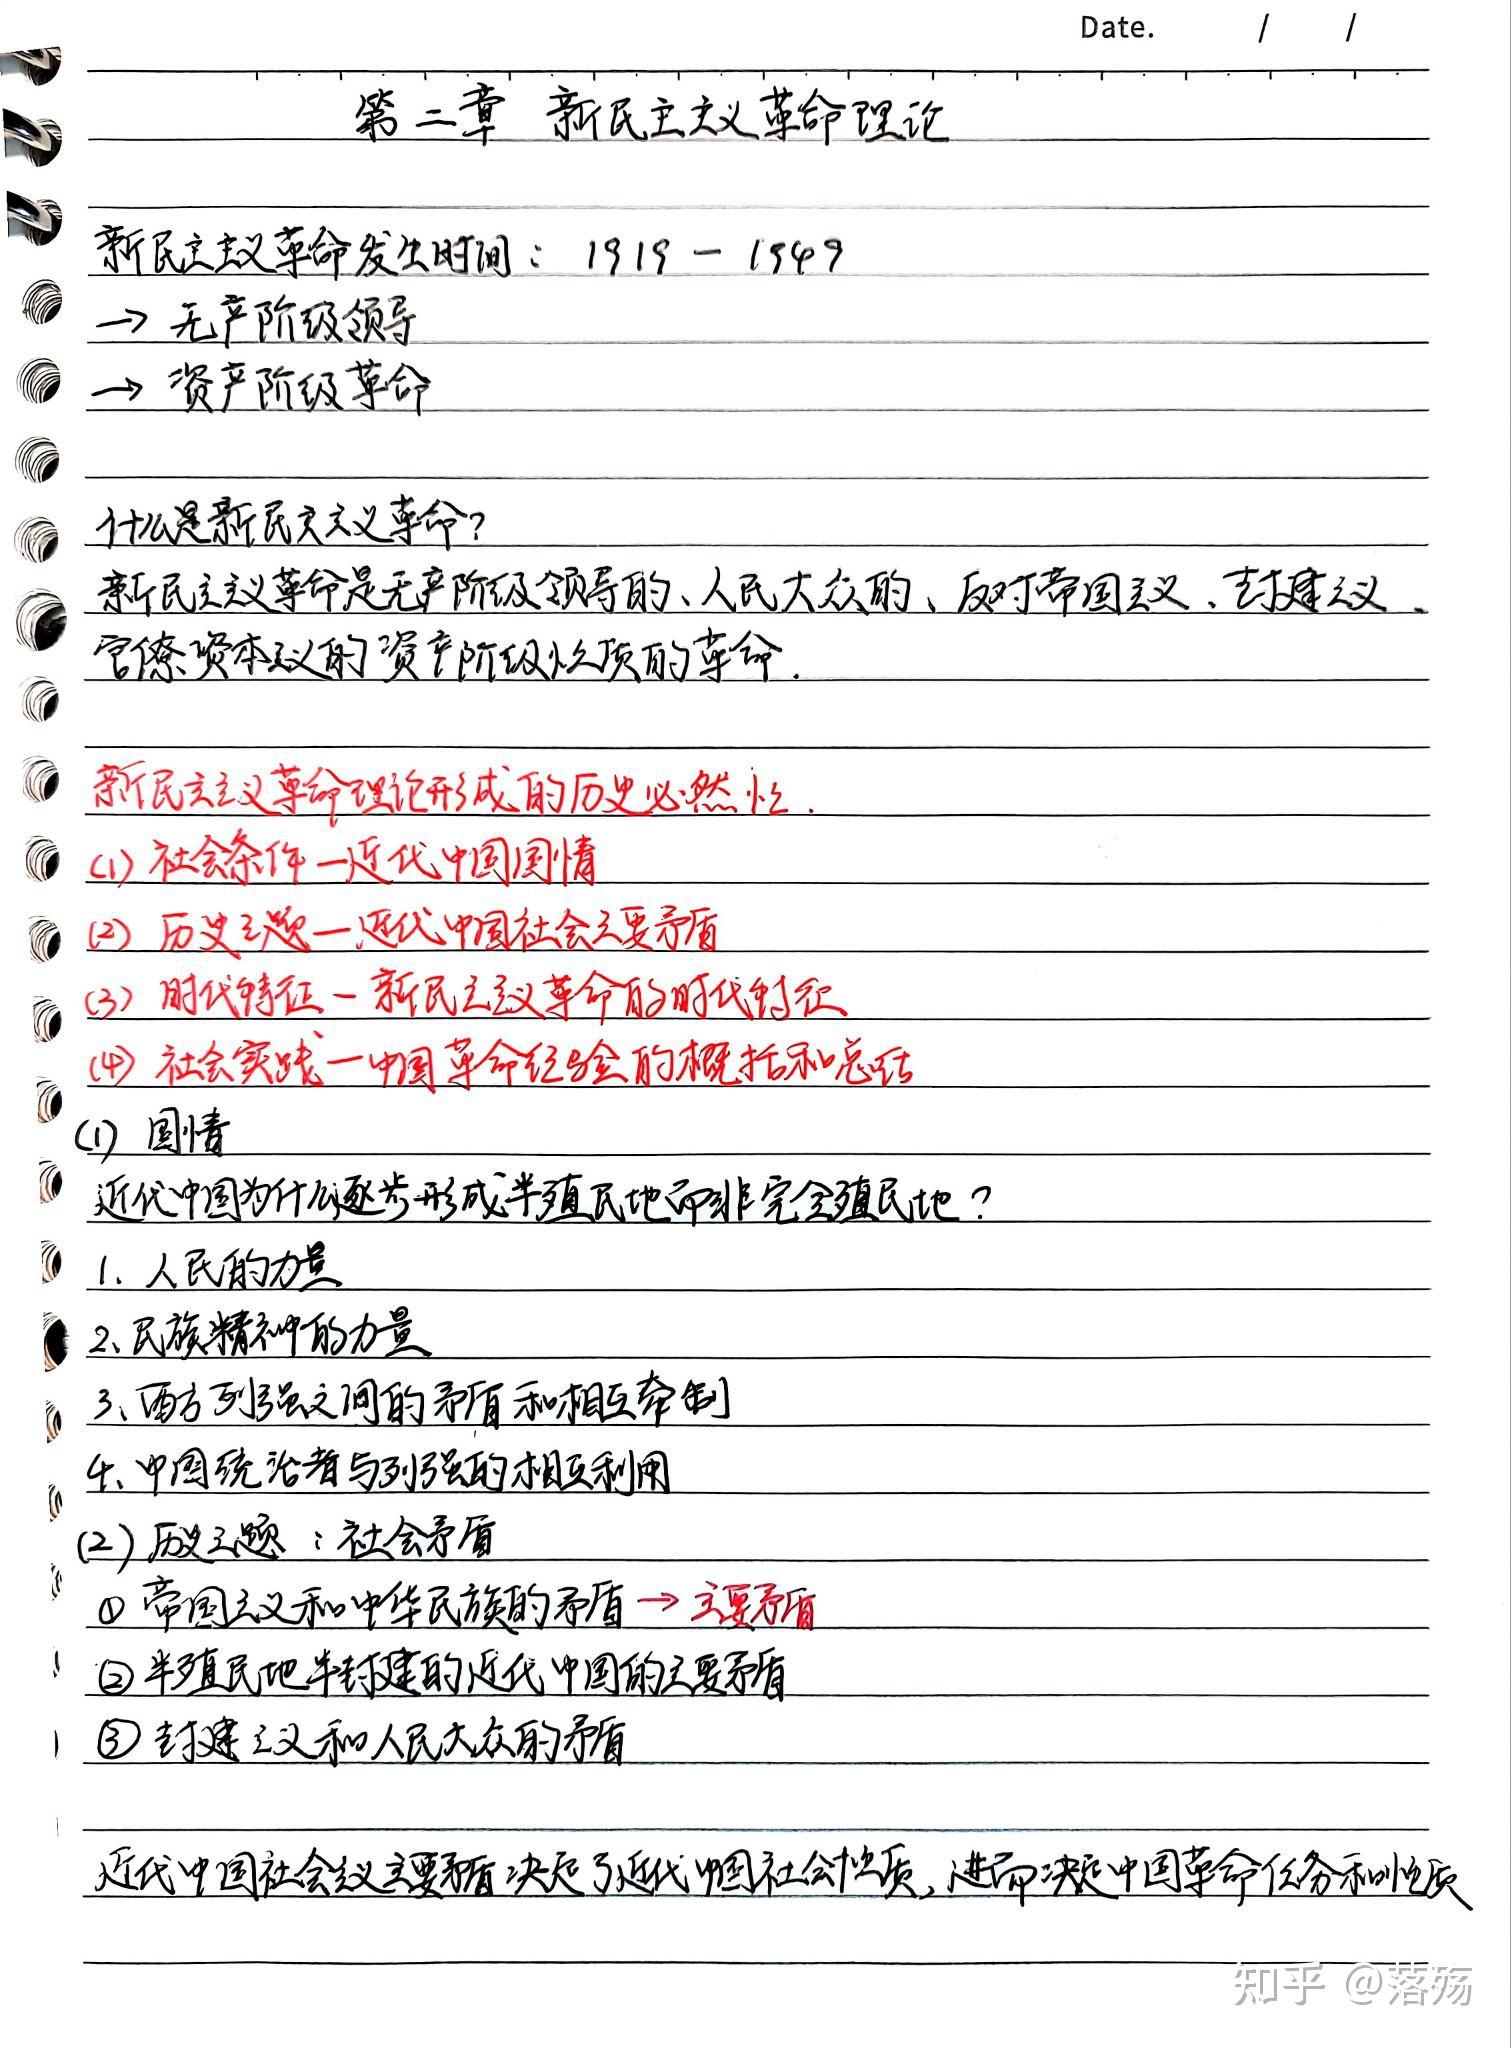 Date. / /
第二章 新民主主义革命理论
新民主主义革命发生时间：1919－1949
→ 无产阶级领导
→ 资产阶级革命
什么是新民主主义革命？
新民主主义革命是无产阶级领导的、人民大众的、反对帝国主义、封建主义、
官僚资本主义的资产阶级性质的革命.
新民主主义革命理论形成的历史必然性.
(1) 社会条件－近代中国国情
(2) 历史主题－近代中国社会主要矛盾
(3) 时代特征－新民主主义革命的时代特征
(4) 社会实践－中国革命经验的概括和总结
(1) 国情
近代中国为什么逐步形成半殖民地而非完全殖民地？
1、人民的力量
2、民族精神的力量
3、西方列强之间的矛盾和相互牵制
4、中国统治者与列强的相互利用
(2) 历史主题：社会矛盾
① 帝国主义和中华民族的矛盾 → 主要矛盾
② 半殖民地半封建的近代中国的主要矛盾
③ 封建主义和人民大众的矛盾
近代中国社会主义主要矛盾决定了近代中国社会性质，进而决定中国革命任务和性质
知乎 @落殇